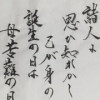 諸人よ
思ひ知れかし
己が身の
誕生の日は
母苦難の日